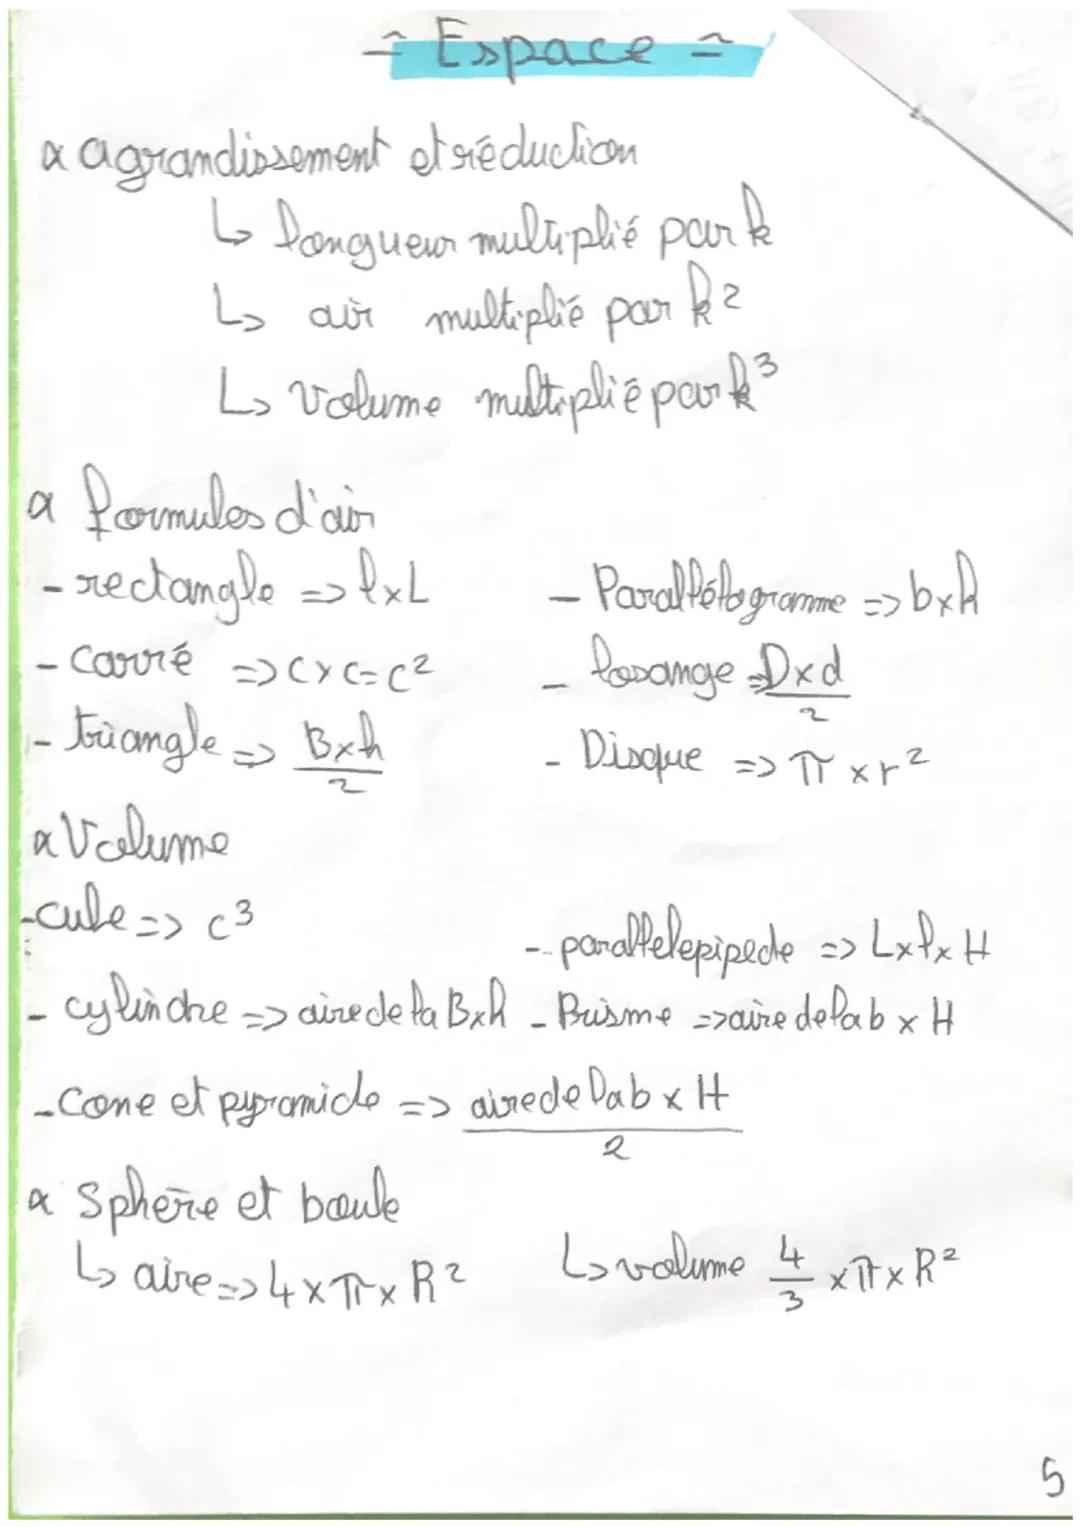 - Espace -
x agrandissement et réduction
↳ longueur multiplié par k
↳ air multiplié par k²
↳ Volume multiplié par k³
x formules d'air
- rectangle => l×L
- Parallélogramme => b×h
- Carré => c×c=c²
- losange => D×d/2
- triangle => B×h/2
- Disque => π×r²
x Volume
- cube => c³
- parallelepipede => L×l×H
- cylindre => aire de la B×h
- Prisme => aire de la b × H
- Cone et pyramide => aire de la b × H/2
x Sphère et boule
↳ aire => 4×π×R²
↳ volume 4/3 ×π×R²
5